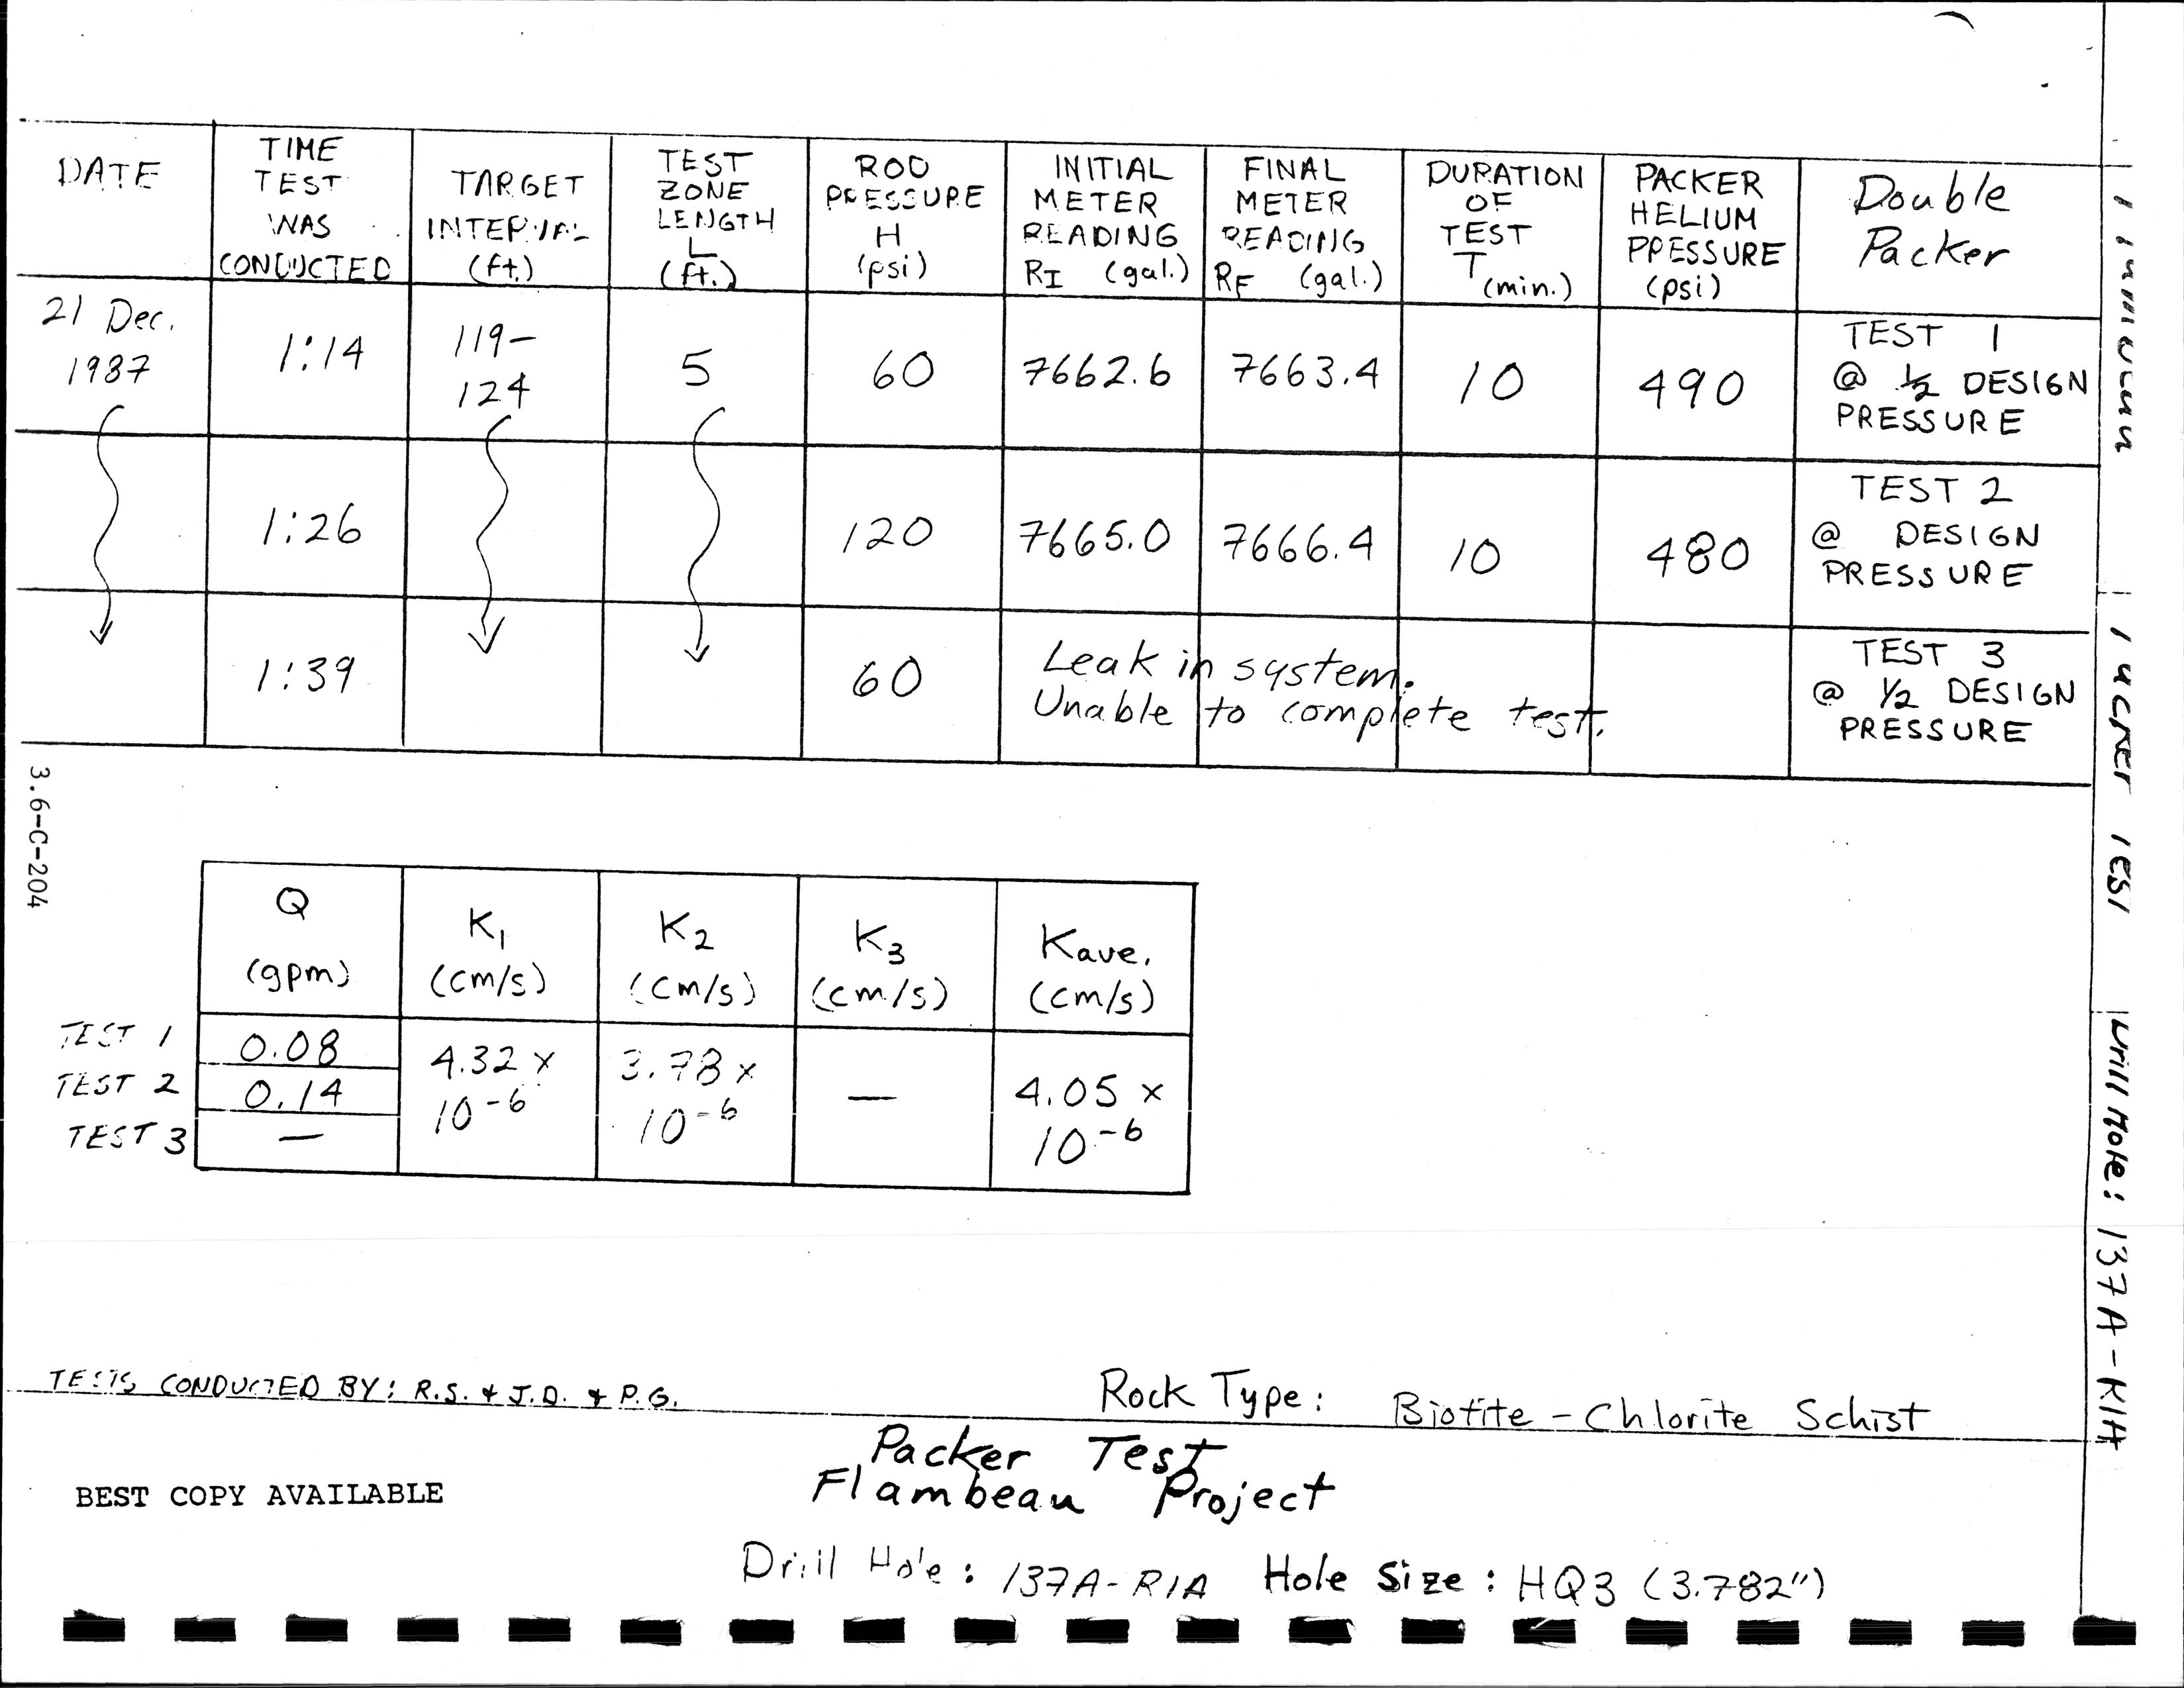 DATE
TIME
TEST
WAS
CONDUCTED
TARGET
INTERVAL
(ft.)
TEST
ZONE
LENGTH
L
(ft.)
ROD
PRESSURE
H
(psi)
INITIAL
METER
READING
RI (gal.)
FINAL
METER
READING
RF (gal.)
DURATION
OF
TEST
T (min.)
PACKER
HELIUM
PRESSURE
(psi)
Double
Packer
21 Dec.
1987
1:14
119-
124
5
60
7662.6
7663.4
10
490
TEST 1
@ 1/2 DESIGN
PRESSURE
1:26
120
7665.0
7666.4
10
480
TEST 2
@ DESIGN
PRESSURE
1:39
60
Leak in system.
Unable to complete test.
TEST 3
@ 1/2 DESIGN
PRESSURE
3.6-C-204
Q
(gpm)
K1
(cm/s)
K2
(cm/s)
K3
(cm/s)
Kave.
(cm/s)
TEST 1
0.08
TEST 2
0.14
TEST 3
—
4.32 x
10-6
3.78 x
10-6
—
4.05 x
10-6
TESTS CONDUCTED BY: R.S. & J.D. & P.G.
Rock Type: Biotite - Chlorite Schist
Packer Test
Flambeau Project
BEST COPY AVAILABLE
Drill Hole: 137A-R1A Hole Size: HQ3 (3.782")
Drill Hole: 137A-